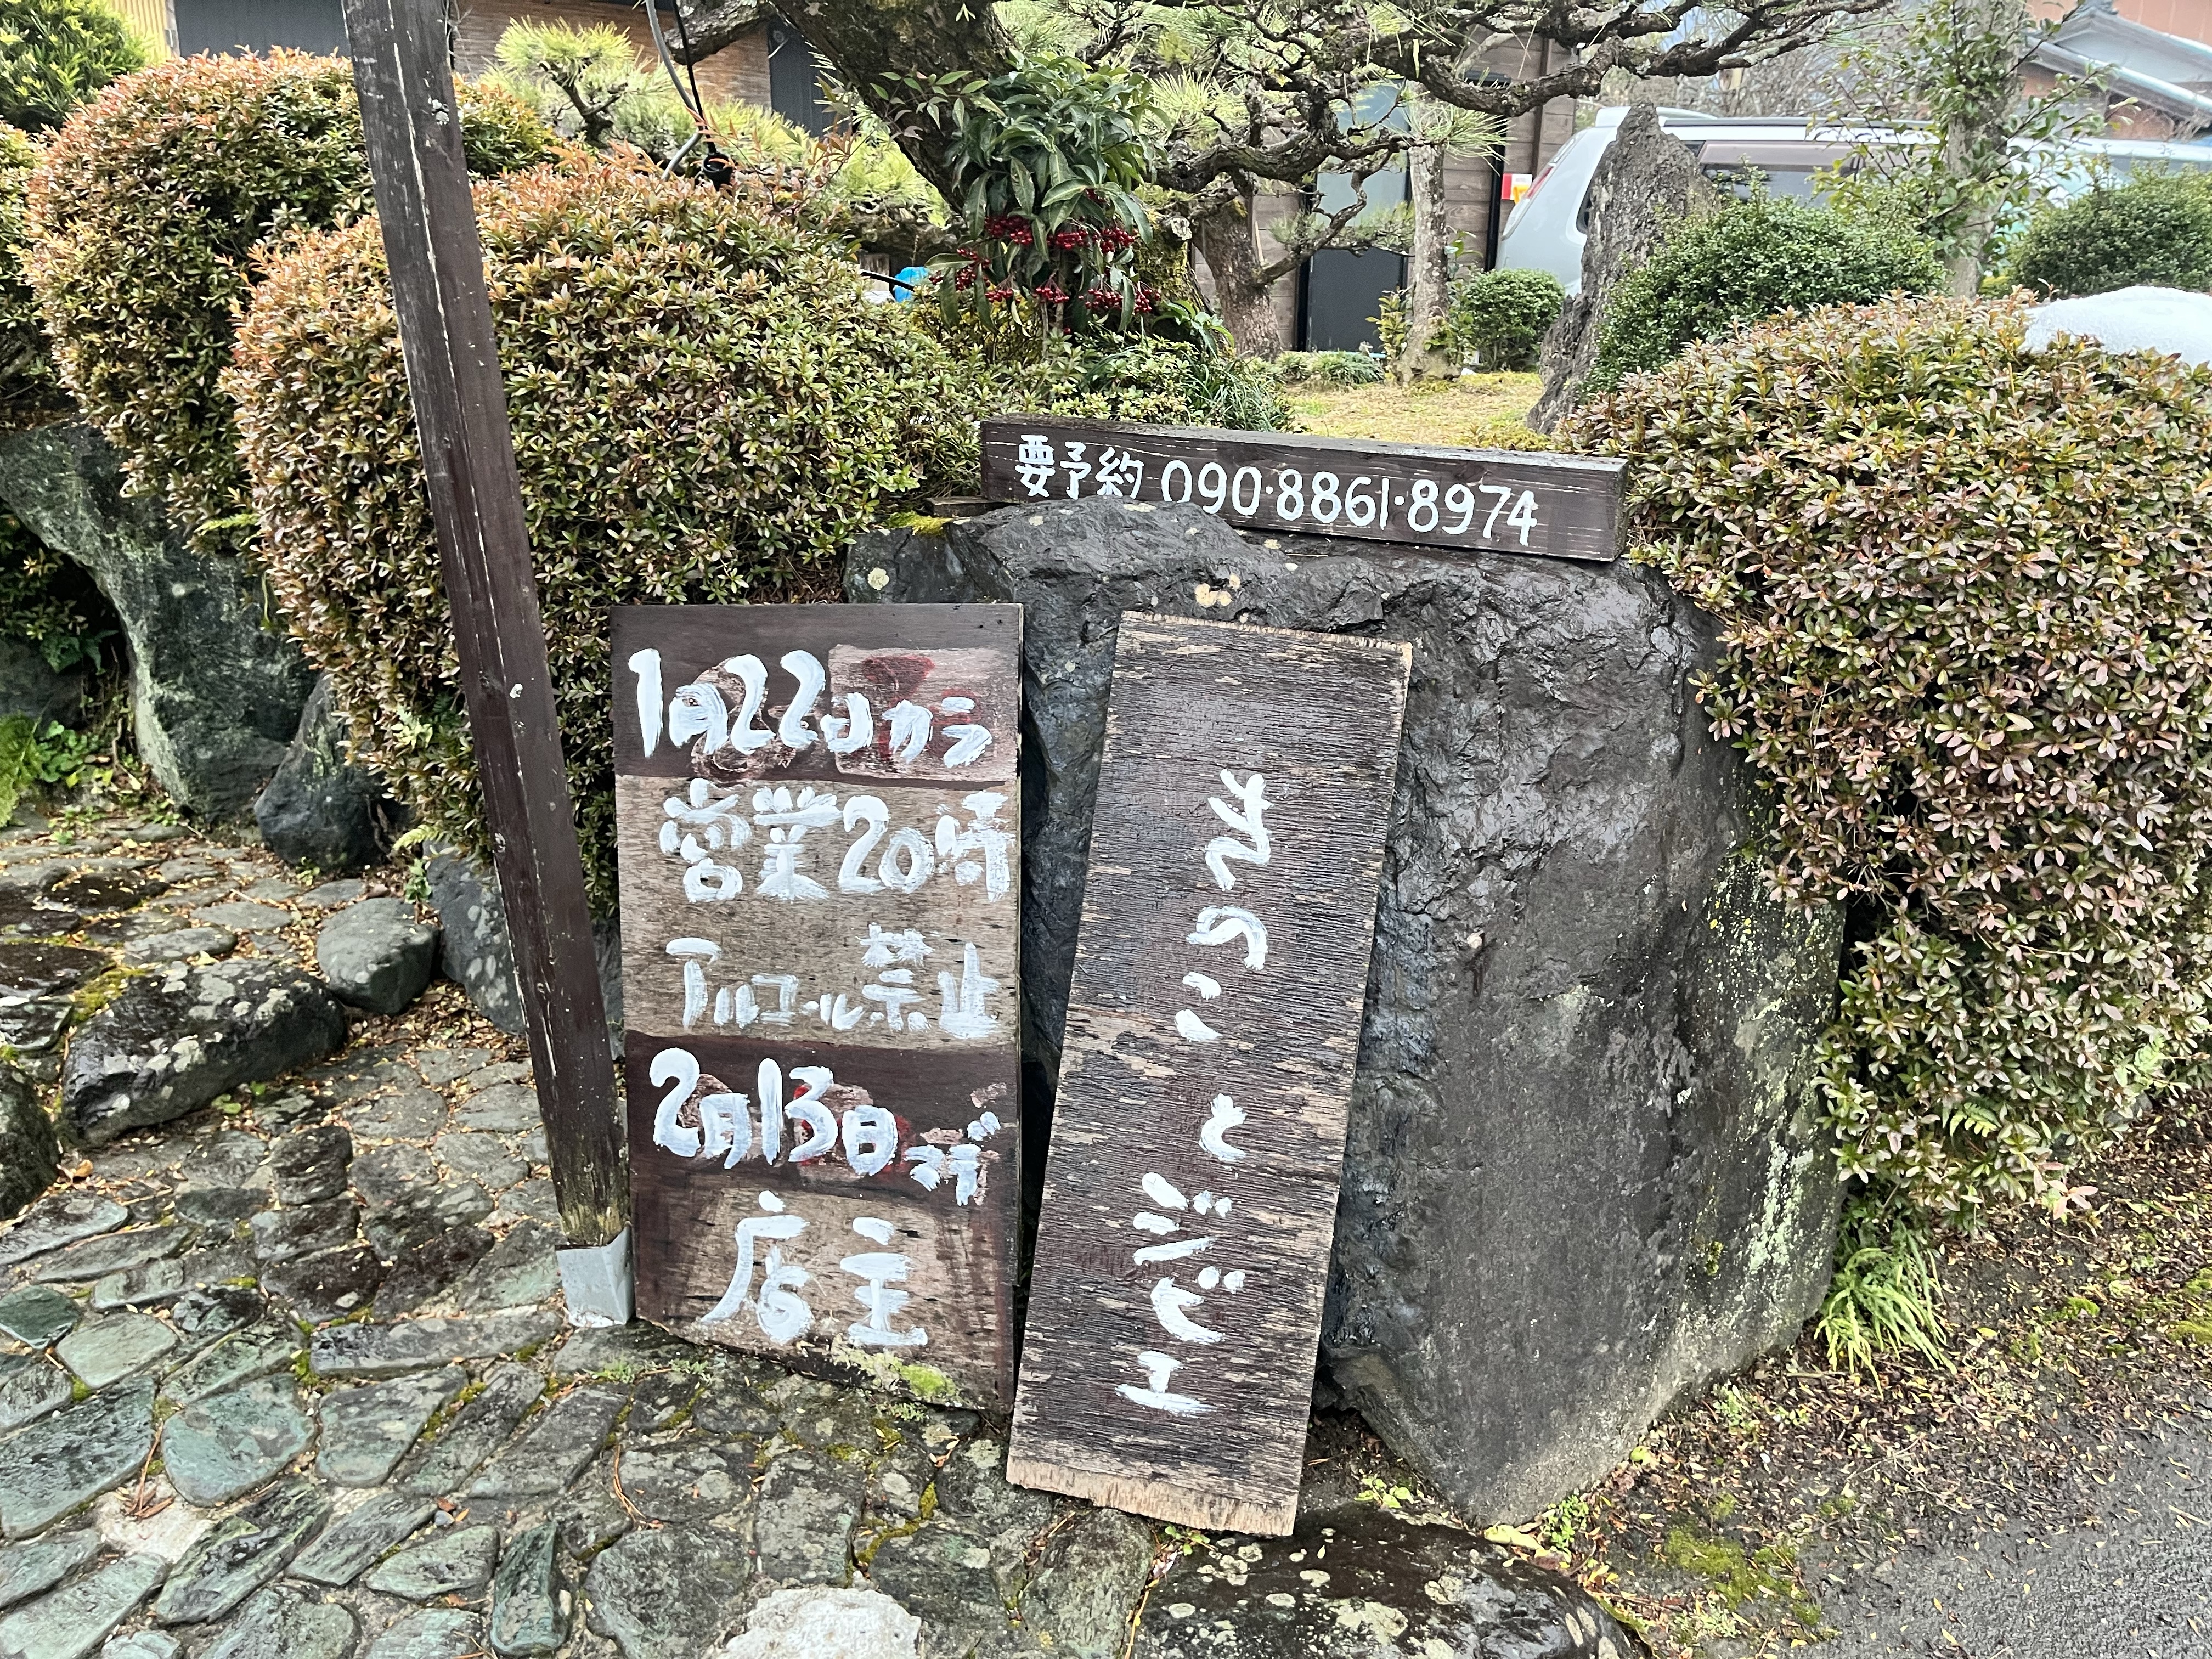 要予約 090・8861・8974
1月22日カラ
営業20時
アルコール禁止
2月13日マデ
店主
きのこ と ジビエ